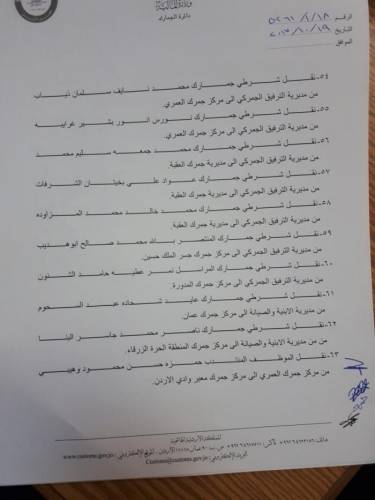 وزارة المالية
دائرة الجمارك
الرقم
التاريخ
الموافق
٥٤-نقل شرطي جمارك محمد نايف سلمان نياب
من مديرية الترفيق الجمركي الى مركز جمرك العمري.
٥٥-نقل شرطي جمارك نورس انور بشير غرايبه
من مديرية الترفيق الجمركي الى مركز جمرك العمري.
٥٦-نقل شرطي جمارك محمد جمعه سليم محمد
من مديرية الترفيق الجمركي الى مديرية جمرك العقبة.
٥٧-نقل شرطي جمارك عواد علي بخيتان الشرفات
من مديرية الترفيق الجمركي الى مديرية جمرك العقبة.
٥٨-نقل شرطي جمارك محمد خالد محمد المزاوده
من مديرية الترفيق الجمركي الى مديرية جمرك العقبة.
٥٩-نقل شرطي جمارك المنتصر بالله محمد صالح ابوهديب
من مديرية الترفيق الجمركي الى مركز جمرك جسر الملك حسين.
٦٠-نقل شرطي جمارك المرسل نمر عطيه حامد الشتيون
من مديرية الترفيق الجمركي الى مركز جمرك المدورة.
٦١-نقل شرطي جمارك عايد شحاده عبد
من مديرية الابنية والصيانة الى مركز جمرك عمان.
٦٢-نقل شرطي جمارك ناصر محمد جاسر البنا
من مديرية الابنية والصيانة الى مركز جمرك المنطقة الحرة الزرقاء.
٦٣-نقل الموظف المنتدب حمزه حسن محمود وهيبي
من مركز جمرك العمري الى مركز جمرك معبر وادي الاردن.
المملكة الأردنية الهاشمية
الأردن. الموقع الإلكتروني: www.customs.gov.jo
البريد الإلكتروني: Customs@customs.gov.jo